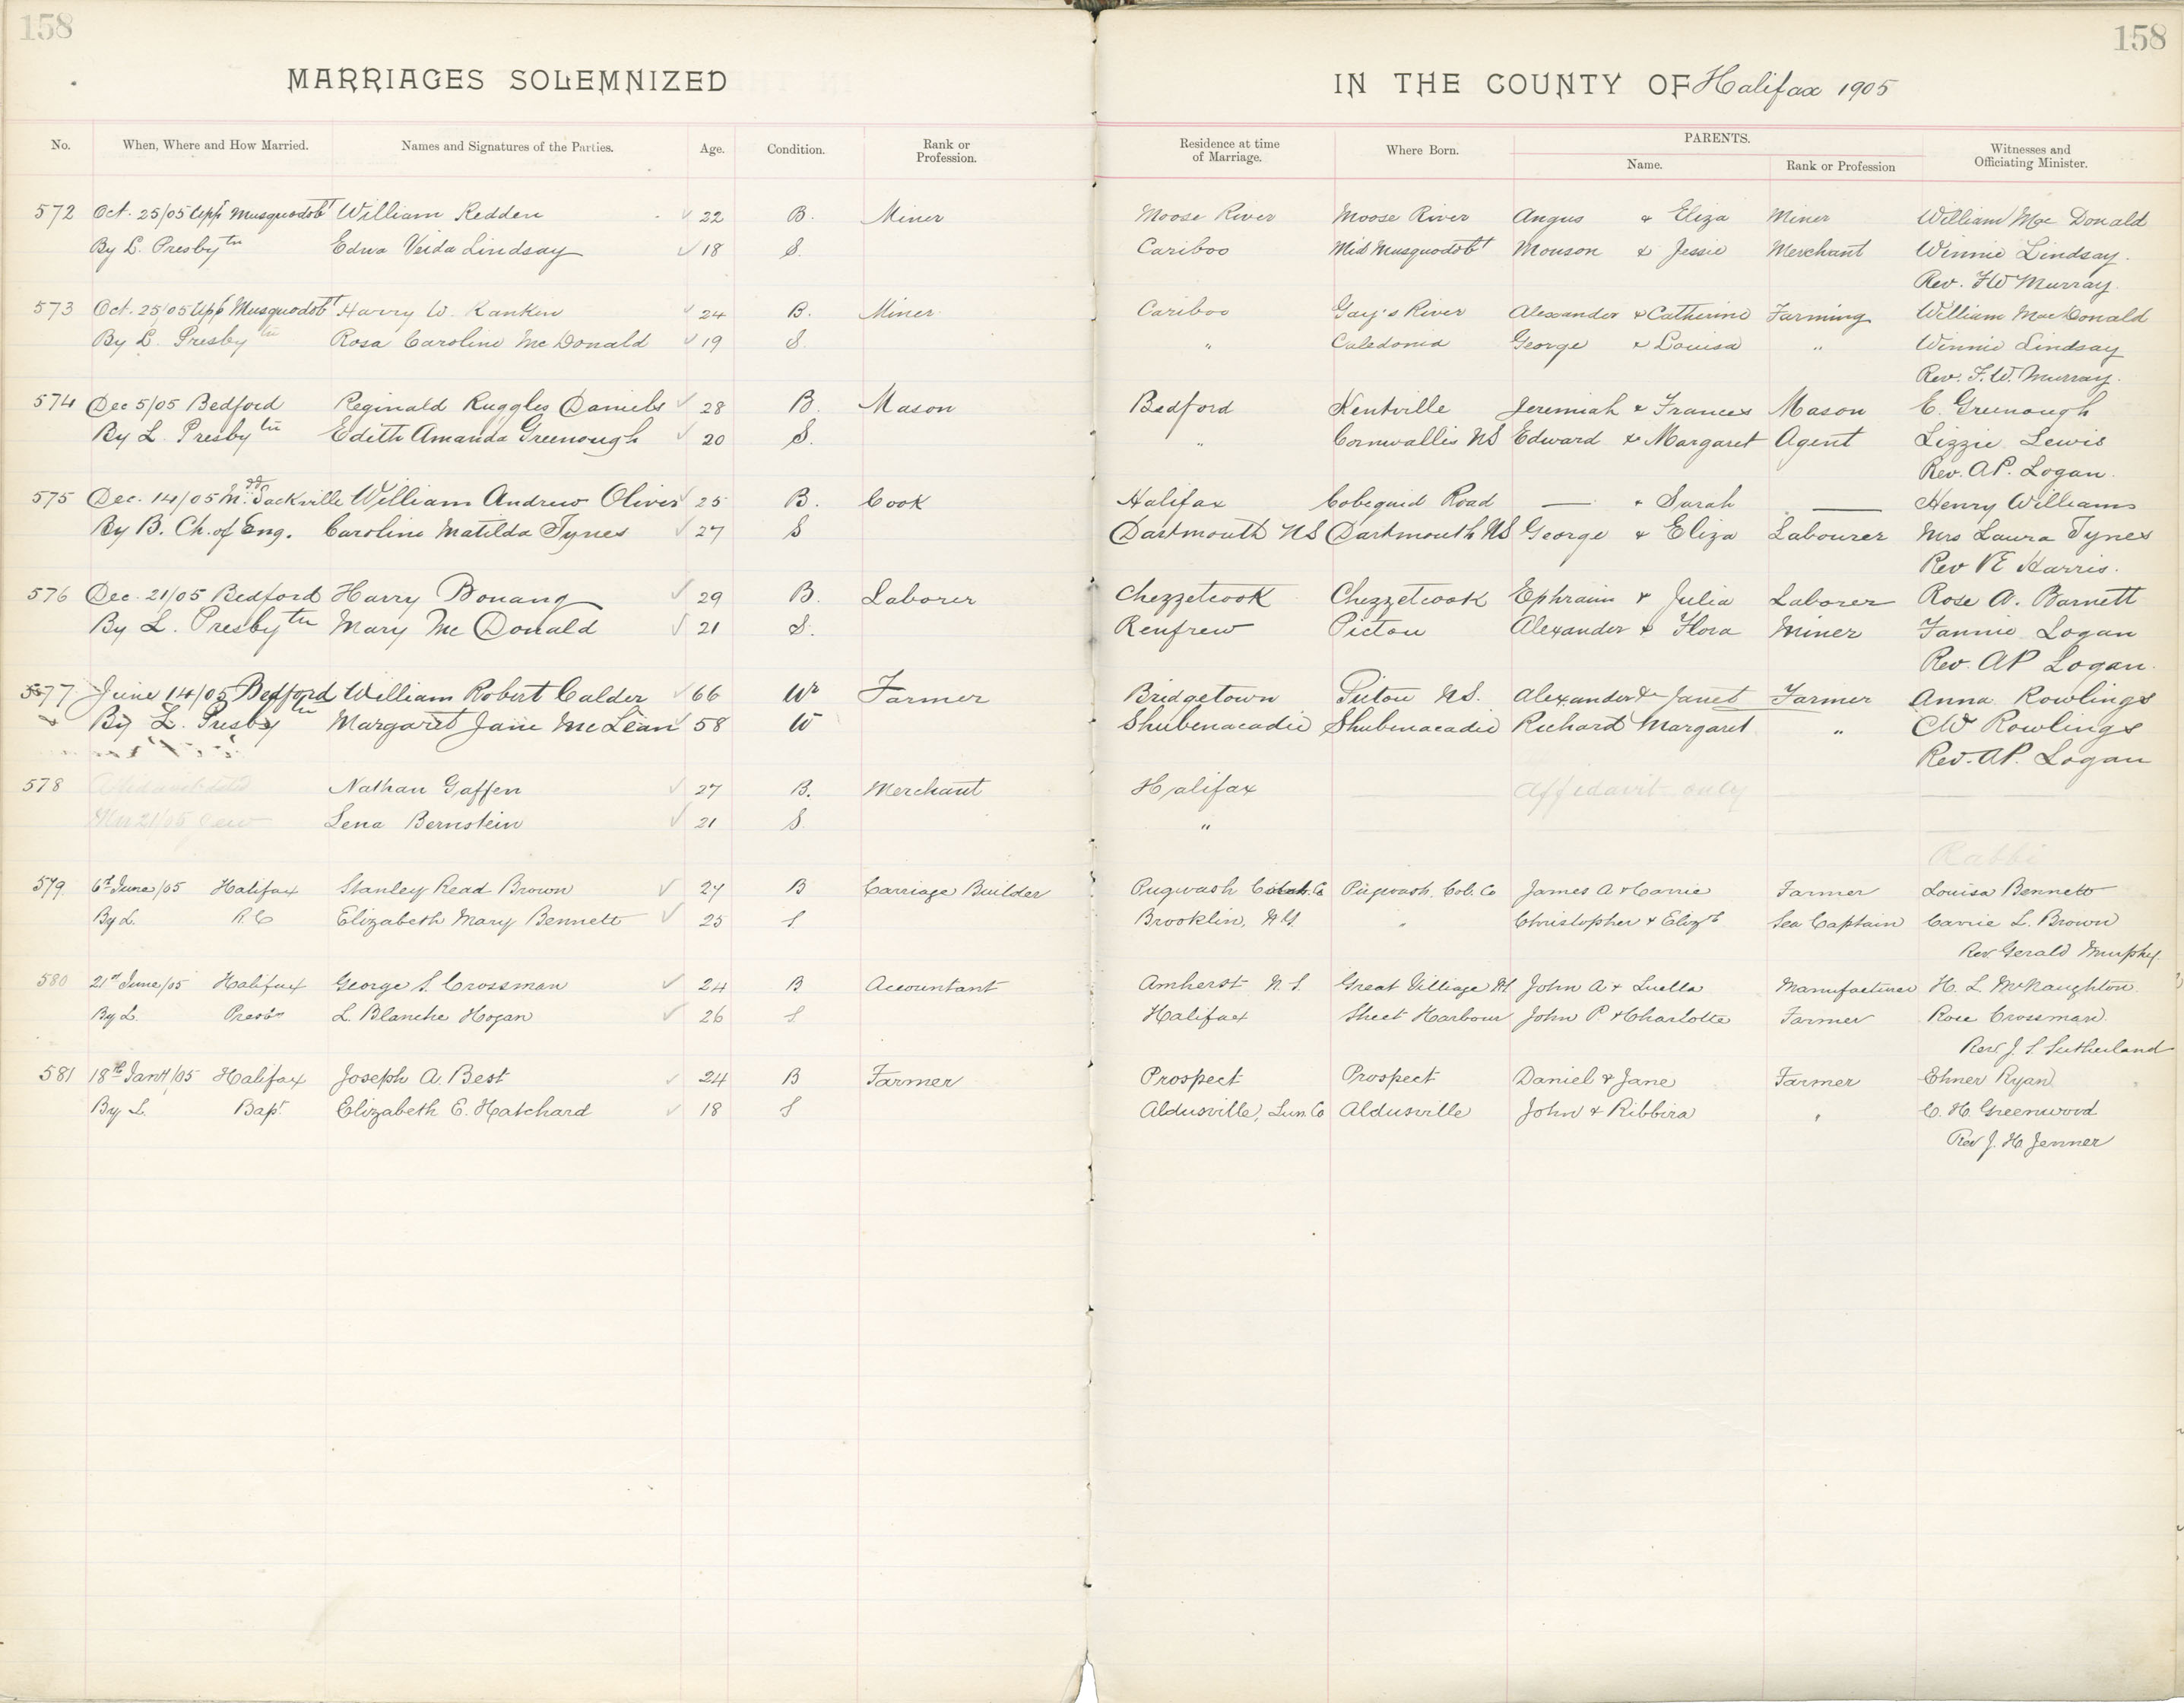 158
158
MARRIAGES SOLEMNIZED IN THE COUNTY OF Halifax 1905
No. When, Where and How Married. Names and Signatures of the Parties. Age. Condition. Rank or Profession. Residence at time of Marriage. Where Born. PARENTS. Name. Rank or Profession Witnesses and Officiating Minister.
572 Oct. 25/05 Upr Musquodobt William Redden 22 B. Miner Moose River Moose River Angus & Eliza Miner William Mac Donald
By L. Presbytn Edna Veida Lindsay 18 S. Cariboo Mid Musquodobt Monson & Jessie Merchant Winnie Lindsay.
Rev. F W Murray.
573 Oct. 25/05 Upr Musquodobt Harry W. Rankin 24 B. Miner Cariboo Gay's River Alexander & Catherine Farming William MacDonald
By L. Presbytn Rosa Caroline Mc Donald 19 S. " Caledonia George & Louisa " Winnie Lindsay
Rev. F. W. Murray.
574 Dec 5/05 Bedford Reginald Ruggles Daniels 28 B. Mason Bedford Kentville Jeremiah & Frances Mason E. Greenough
By L. Presbytn Edith Amanda Greenough 20 S. " Cornwallis NS Edward & Margaret Agent Lizzie Lewis
Rev. A P. Logan.
575 Dec. 14/05 M.dd Sackville William Andrew Oliver 25 B. Cook Halifax Cobequid Road — & Sarah — Henry Williams
By B. Ch. of Eng. Caroline Matilda Tynes 27 S Dartmouth NS Dartmouth NS George & Eliza Labourer Mrs Laura Tynes
Rev VE Harris.
576 Dec. 21/05 Bedford Harry Bonang 29 B. Laborer Chezzetcook Chezzetcook Ephraim & Julia Laborer Rose A. Barnett
By L. Presbytn Mary Mc Donald 21 S. Renfrew Pictou Alexander & Flora Miner Fannie Logan
Rev. AP Logan.
577 June 14/05 Bedford William Robert Calder 66 Wr Farmer Bridgetown Pictou NS. Alexander & Janet Farmer Anna Rowlings
By L. Presbytn Margaret Jane McLean 58 W Shubenacadie Shubenacadie Richard Margaret " CW Rowlings
Rev. AP. Logan
578 Nathan Gaffen 27 B. Merchant Halifax Affidavit only
21/05 Lena Bernstein 21 S. "
Rabbi
579 6th June/05 Halifax Stanley Read Brown 27 B Carriage Builder Pugwash Co Pugwash. Col. Co James A & Carrie Farmer Louisa Bennett
By L. R.C Elizabeth Mary Bennett 25 S Brooklin, N.Y. " Christopher & Elizth Sea Captain Carrie L. Brown
Rev Gerald Murphy.
580 21st June/05 Halifax George S. Crossman 24 B Accountant Amherst N. S. Great Village John A & Luella Manufacturer H. L. McNaughton.
By L. Presbn L. Blanche Hogan 26 S Halifax Sheet Harbour John P & Charlotte Farmer Rose Crossman.
Rev. J. S. Sutherland
581 18th Jany/05 Halifax Joseph A. Best 24 B Farmer Prospect Prospect Daniel & Jane Farmer Elmer Ryan
By L. Bapt. Elizabeth E. Hatchard 18 S Aldusville, Lun. Co Aldusville John & Ribbira " C. H. Greenwood
Rev J. H. Jenner